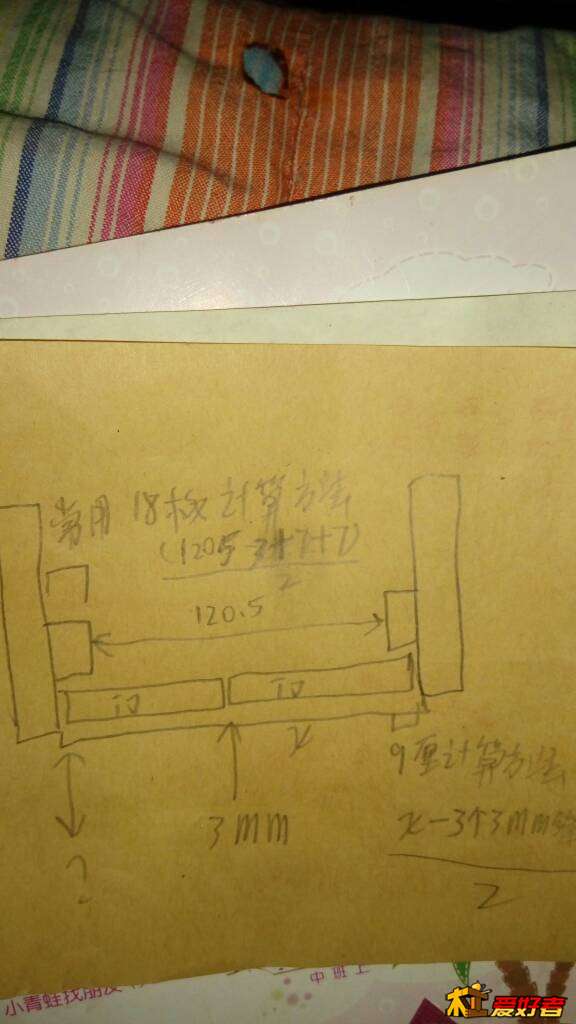 常用 18板计算方法
(1205-3+7+7)
2
120.5
门
门
x
3mm
?
9厘计算方法
x-3个3mm缝
2
小青蛙找朋友
中班上
木工爱好者